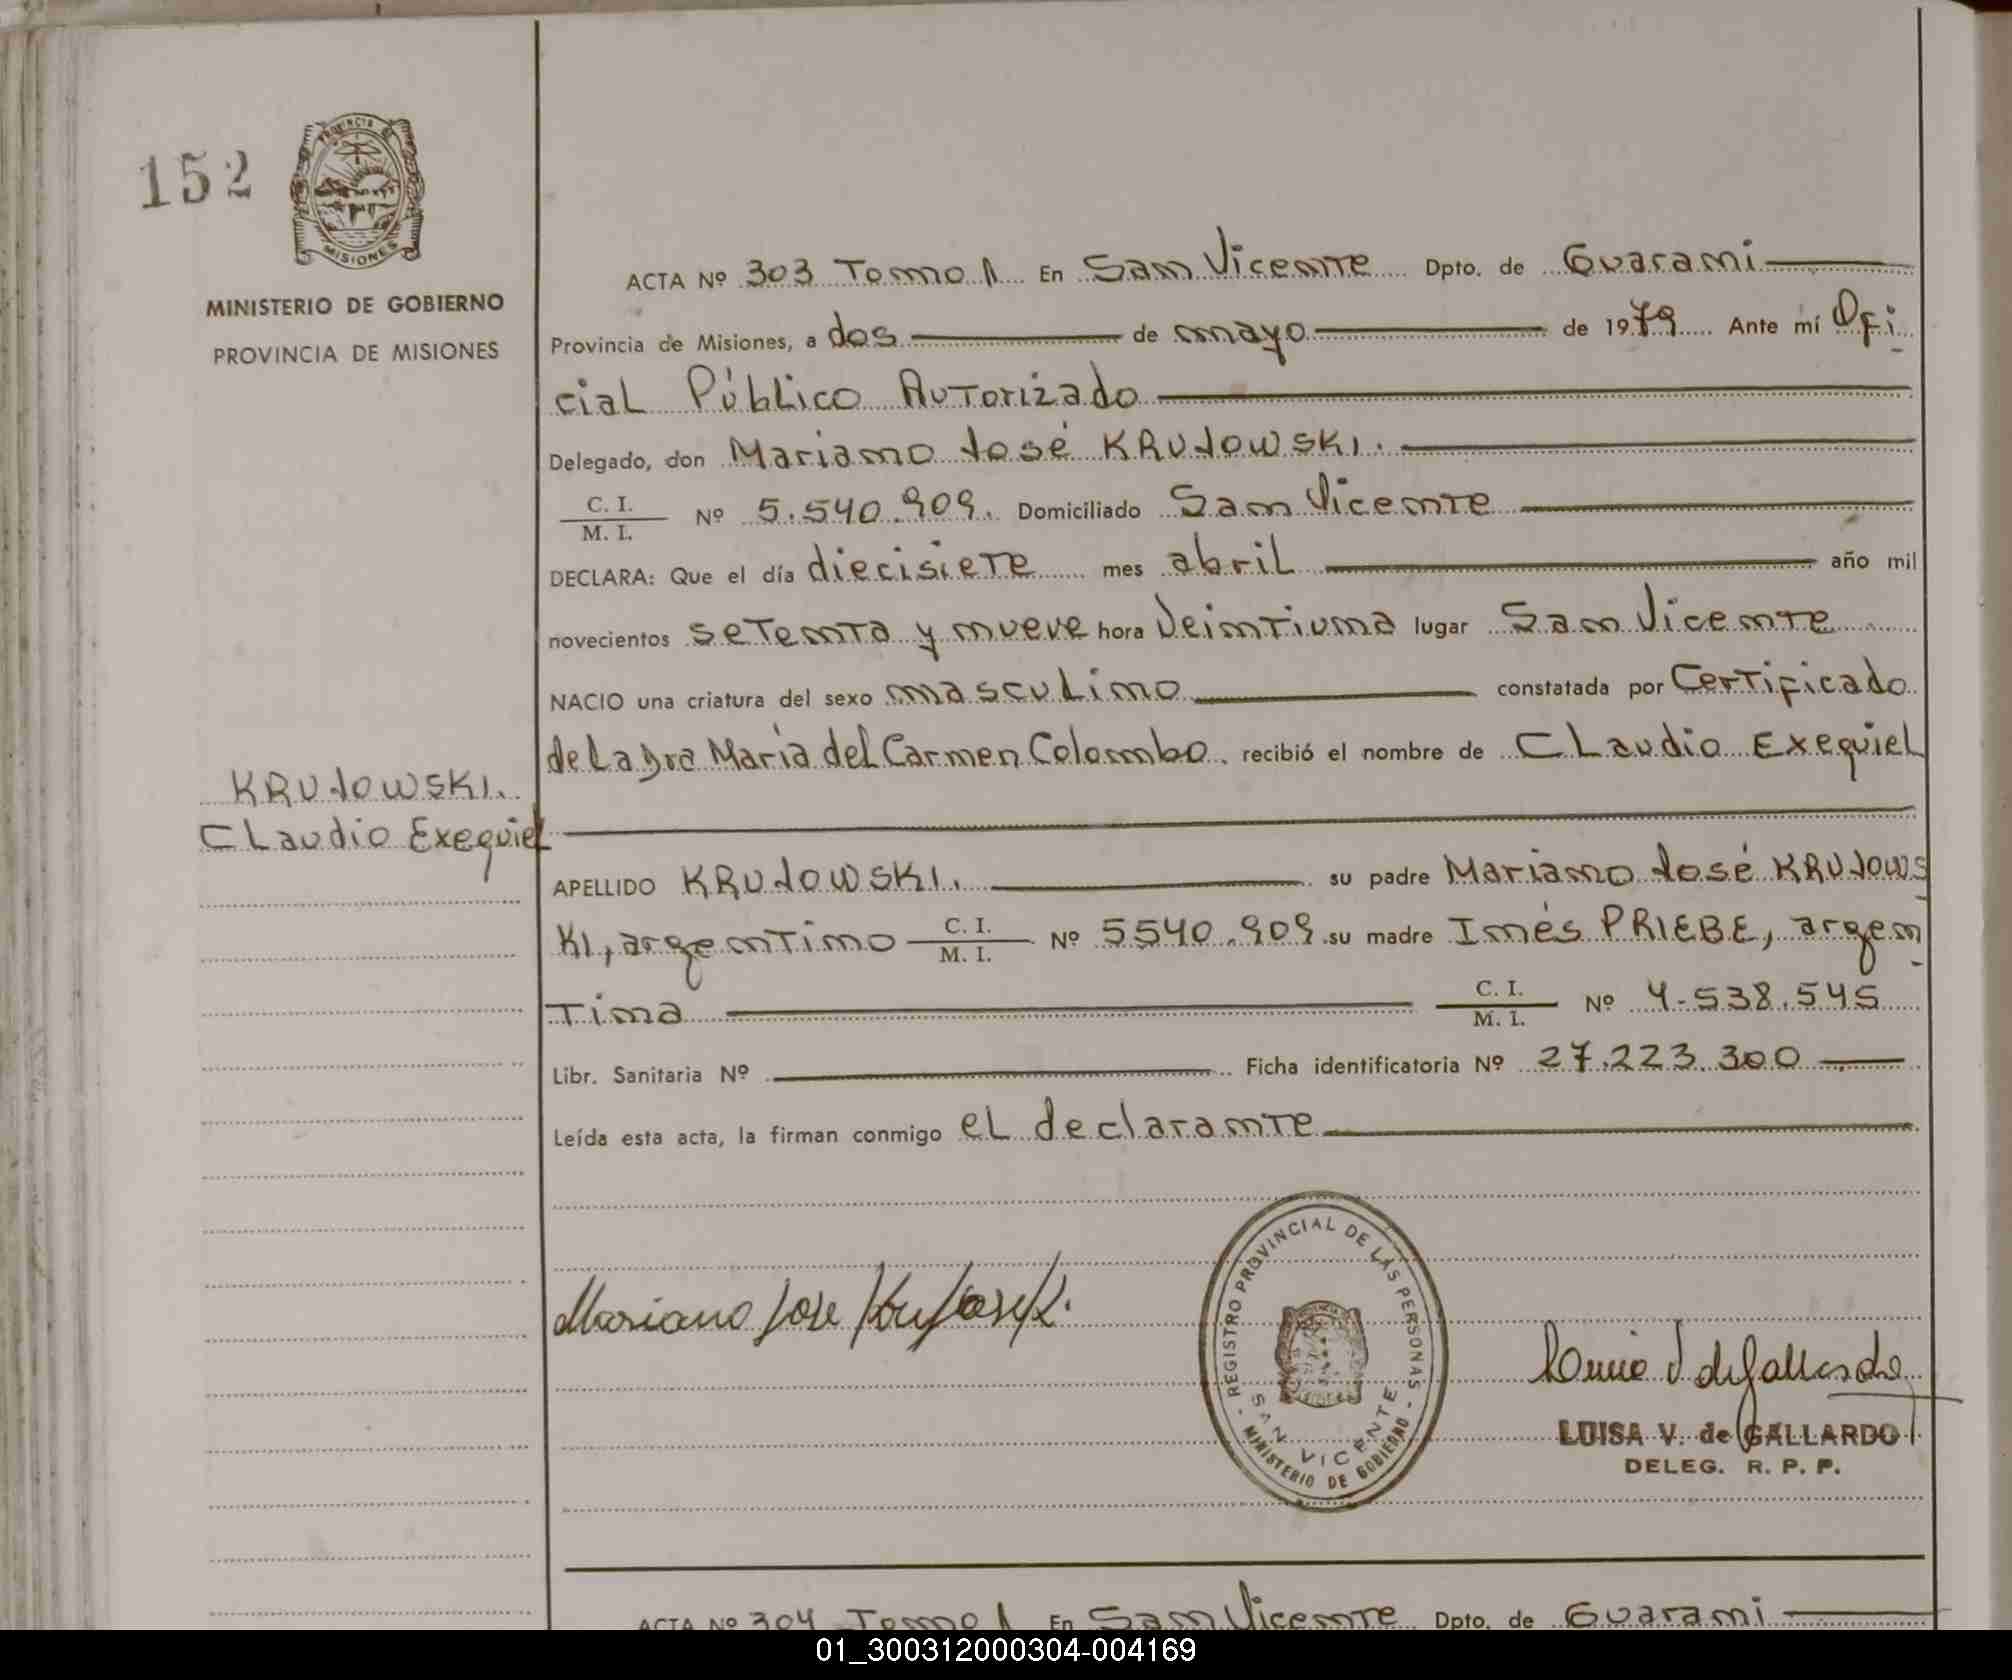 152
PROVINCIA DE
MISIONES
MINISTERIO DE GOBIERNO
PROVINCIA DE MISIONES
ACTA Nº 303 Tomo 1 En San Vicente Dpto. de Guarani
Provincia de Misiones, a dos de mayo de 1979 Ante mí Ofi
cial Público Autorizado
Delegado, don Mariano José KRUJOWSKI.
C. I.
M. I. Nº 5.540.909. Domiciliado San Vicente
DECLARA: Que el día diecisiete mes abril año mil
novecientos setenta y nueve hora Veintiuna lugar San Vicente
NACIO una criatura del sexo masculino constatada por Certificado
de La Dra María del Carmen Colombo. recibió el nombre de Claudio Exequiel
KRUJOWSKI.
Claudio Exequiel
APELLIDO KRUJOWSKI. su padre Mariano José KRUJOWS
KI, argentino C. I. M. I. Nº 5540.909 su madre Inés PRIEBE, argen
tina C. I. M. I. Nº 4.538.545
Libr. Sanitaria Nº Ficha identificatoria Nº 27.223.300
Leída esta acta, la firman conmigo el declarante
Mariano Jose Krujowski.
REGISTRO PROVINCIAL DE LAS PERSONAS
SAN VICENTE
- MINISTERIO DE GOBIERNO -
LUISA V. de GALLARDO
DELEG. R. P. P.
ACTA Nº 304 Tomo 1 En San Vicente Dpto. de Guarani
01_300312000304-004169